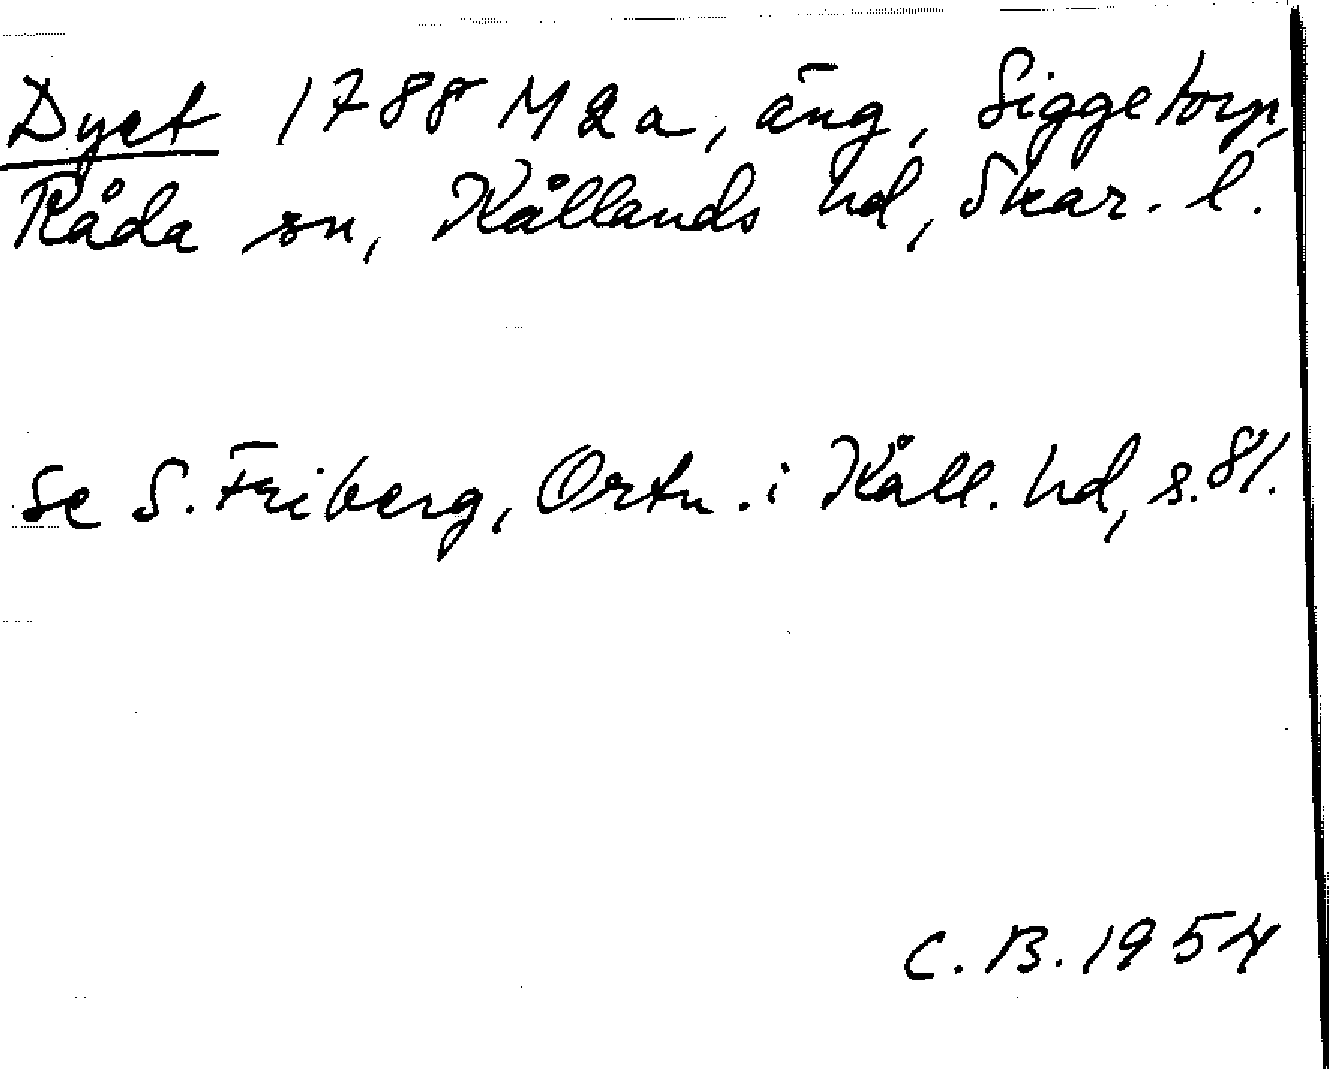 Dyet 1788 M2a, äng, Siggetorp,
Råda sn, Kållands hd, Skar. l.
Se S. Friberg, Ortn. i Kåll. hd, s. 81.
C. B. 1954